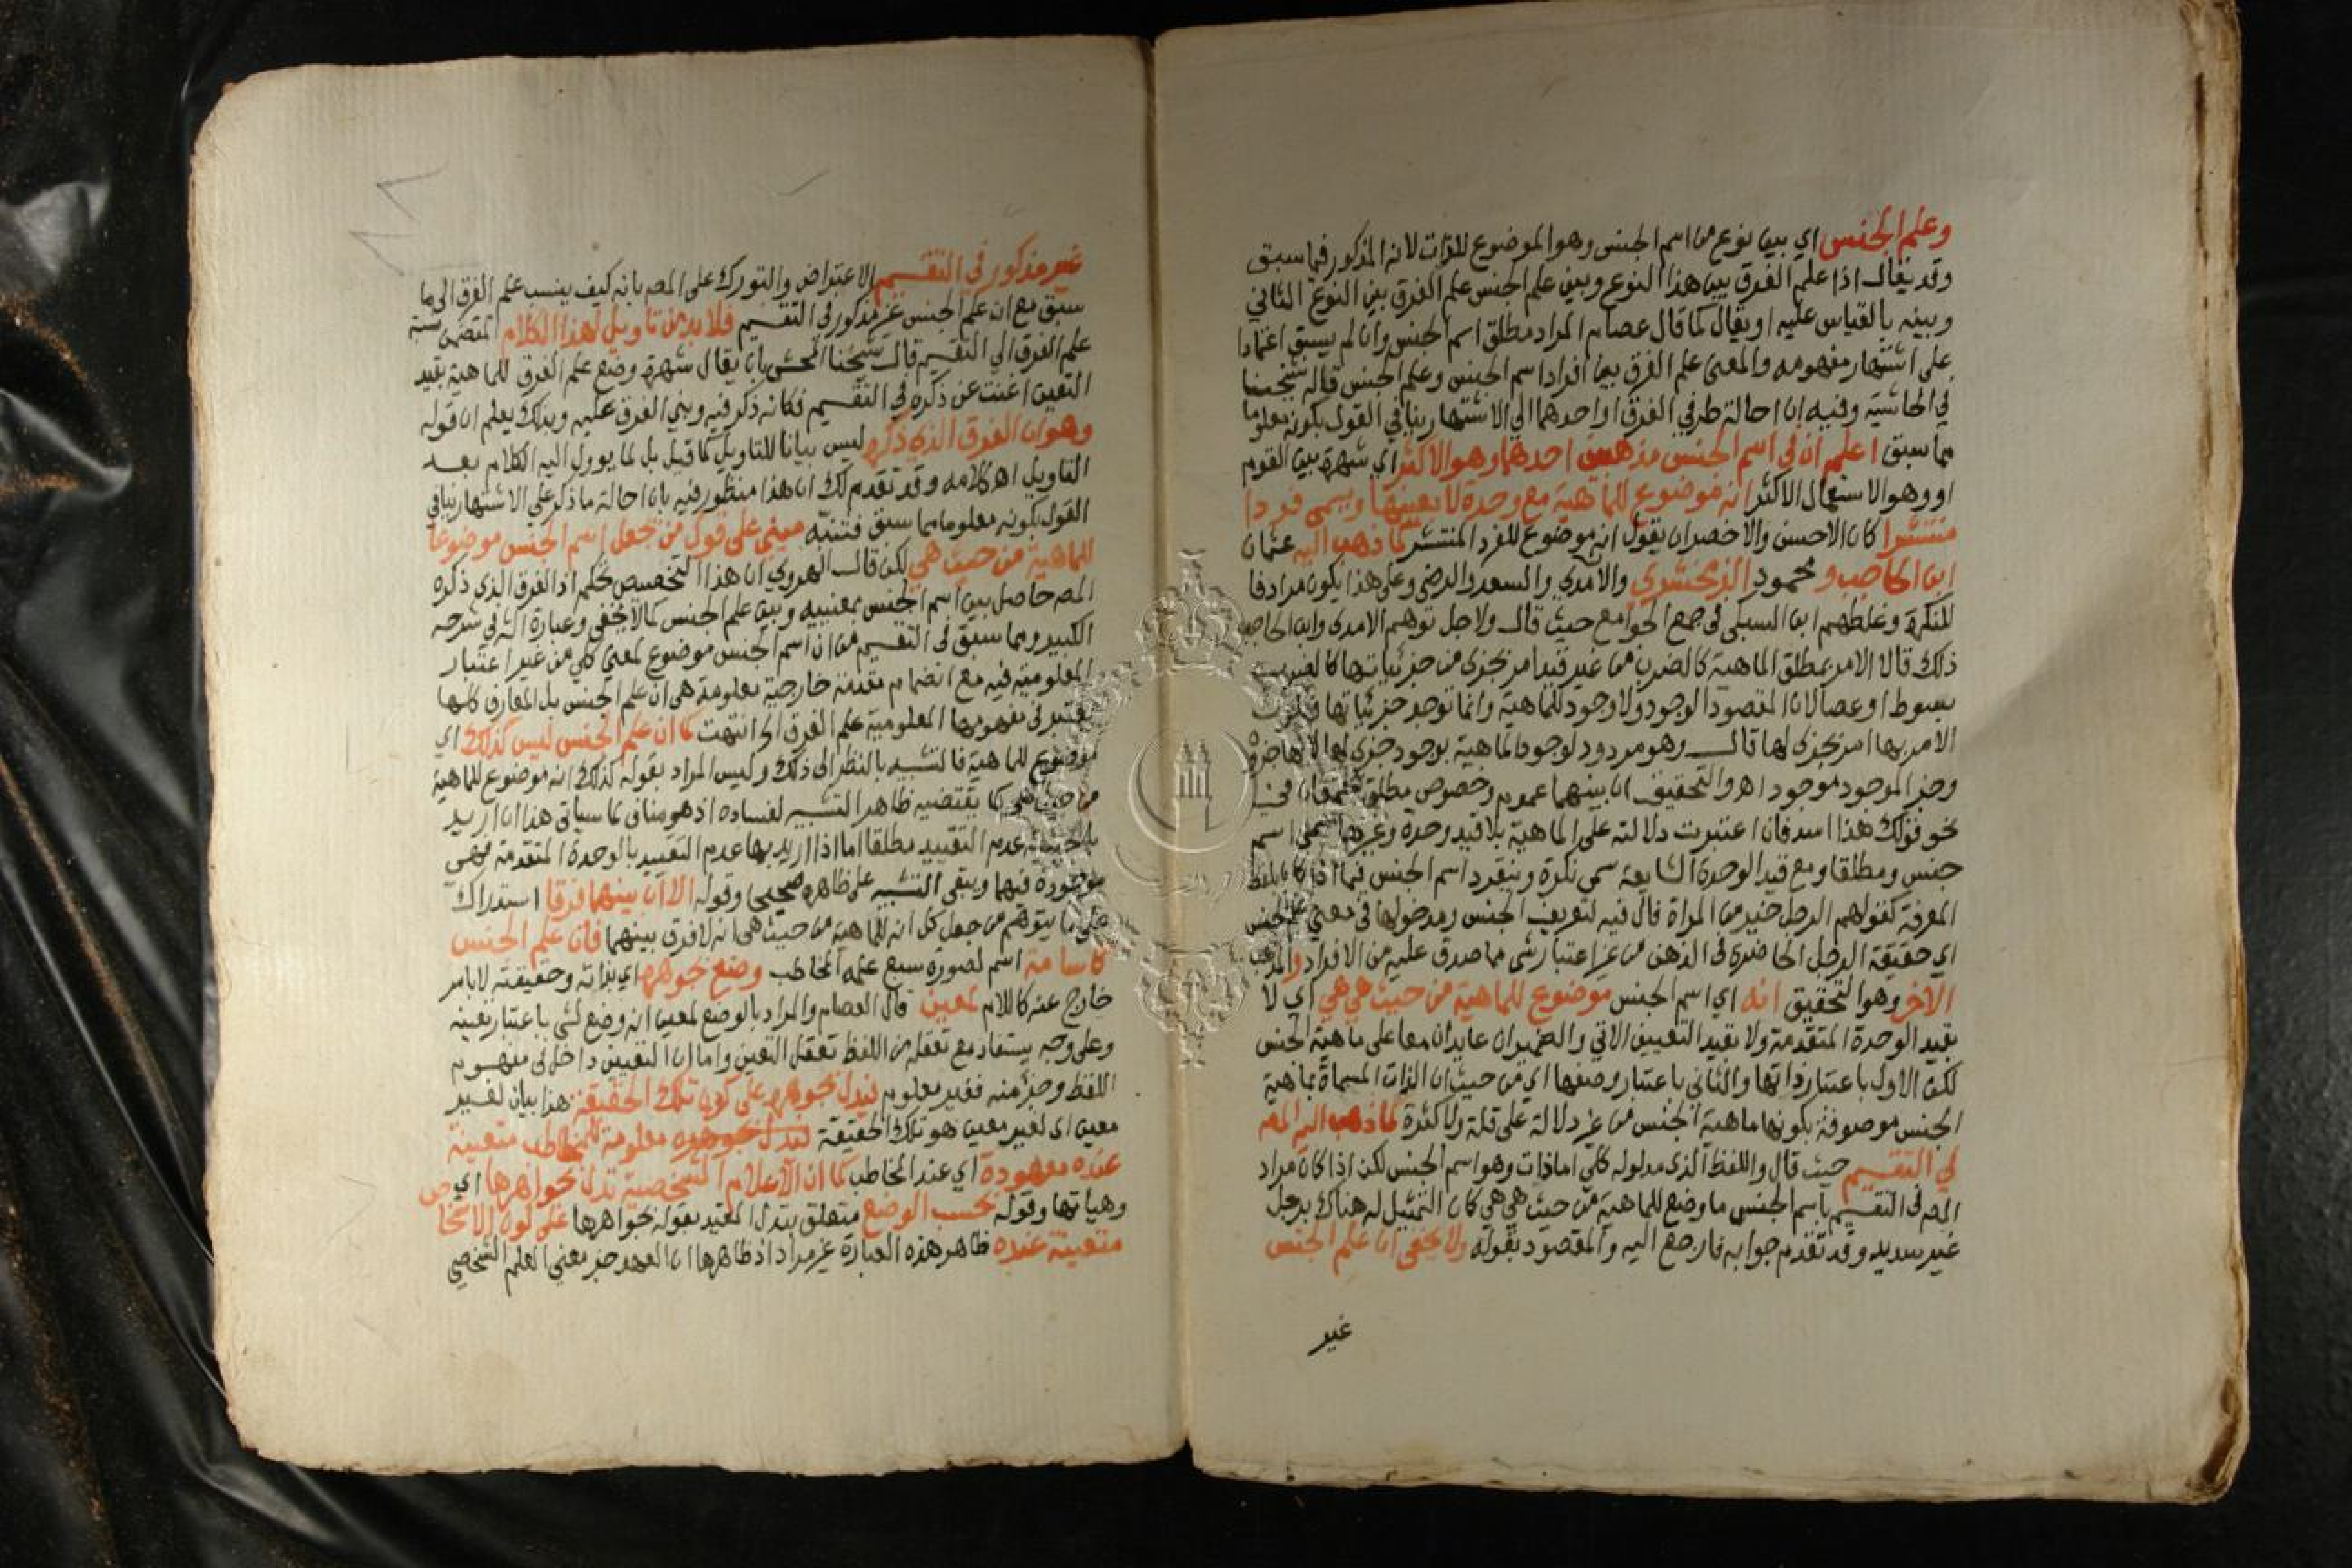 وعلم الجنس اي بين نوع من اسم الجنس وهو الموضوع للذات لانه المذكور فيما سبق
وقد يقال اذا علم الفرق بين هذا النوع وبين علم الجنس علم الفرق بين النوع الثاني
وبينه بالقياس عليه او يقال كما قال عصام المراد مطلق اسم الجنس وان لم يسبق اعتمادا
على اشتهار مفهومه والمعنى علم الفرق بين افراد اسم الجنس وعلم الجنس قاله شيخنا
في الحاشية وفيه ان احالة طرفي الفرق او احدهما الى الاشتهار ينافي القول بكونه معلوما
مما سبق اعلم ان في اسم الجنس مذهبين احدهما وهو الاكثر اي شهرة بين القوم
او وهو الاستعمال الاكثر انه موضوع للماهية مع وحدة لا بعينها ويسمى فردا
منتشرا كان الاحسن والاخصر ان يقول انه موضوع للفرد المنتشر كما ذهب اليه عثمان
ابن الحاجب ومحمود الزمخشري والآمدي والسعد والرضي وعلى هذا يكون مرادفا
للنكرة وغلطهم ابن السبكي في جمع الجوامع حيث قال ولاجل توهم الامدى وابن الحاجب
ذلك قالا الامر بمطلق الماهية كالضرب من غير قيد امر بجزى من جزئياتها كالضرب
بسوط او عصا لان المقصود الوجود ولا وجود للماهية وانما توجد جزئياتها
الامر بها امر بجزى لها قال وهو مردود لوجود الماهية بوجود جزى لها لانها جزؤه
وجزء الموجود موجود اهـ والتحقيق ان بينهما عموم وخصوص مطلق
نحو قولك هذا اسد فان اعتبرت دلالته على الماهية بلا قيد وحدة وغيرها سمى اسم
جنس ومطلقا ومع قيد الوحدة الشايعة سمى نكرة وينفرد اسم الجنس فيما اذا كان بلفظ
المعرفة كقولهم الرجل خير من المراة فال فيه لتعريف الجنس ومدخولها في معنى علم الجنس
اي حقيقة الرجل الحاضرة في الذهن من غير اعتبار شى مما صدق عليه من الافراد والمذهب
الآخر وهو التحقيق انه اي اسم الجنس موضوع للماهية من حيث هي هي اي لا
بقيد الوحدة المتقدمة ولا بقيد التعيين الاتي والضميران عايدان معا على ماهية الجنس
لكن الاول باعتبار ذاتها والثاني باعتبار وصفها اي من حيث ان الذات المسماة بماهية
الجنس موصوفة بكونها ماهية الجنس من غير دلالة على قلة ولا كثرة كما ذهب اليه المص
في التقسيم حيث قال واللفظ الذى مدلوله كلي اما ذات وهو اسم الجنس لكن اذا كان مراد
المص في التقسيم باسم الجنس ما وضع للماهية من حيث هي هي كان التمثيل له هناك برجل
غير سديد وقد تقدم جوابه فارجع اليه والمقصود بقوله ولا يخفى ان علم الجنس
غير
غير مذكور في التقسيم الاعتراض والتورك على المص بانه كيف ينسب علم الفرق الى ما
سبق مع ان علم الجنس غير مذكور في التقسيم فلا بد من تاويل لهذا الكلام المتضمن نسبة
علم الفرق الى التقسيم قال شيخنا المحشى بان يقال شهرة وضع علم الفرق للماهية بقيد
التعين اغنت عن ذكره في التقسيم فكانه ذكر فيه وبني الفرق عليه وبذلك يعلم ان قوله
وهو ان الفرق الذى ذكره ليس بيانا للتاويل كما قيل بل لما يوول اليه الكلام بعد
التاويل اهـ كلامه وقد تقدم لك ان هذا منظور فيه بان احالة ما ذكر على الاشتهار ينافي
القول بكونه معلوما مما سبق فتنبه مبني على قول من جعل اسم الجنس موضوعا
للماهية من حيث هي لكن قال الهروي ان هذا التخصيص تحكم اذ الفرق الذي ذكره
المص حاصل بين اسم الجنس بمعنييه وبين علم الجنس كما لا يخفى وعبارة الش في شرحه
الكبير ومما سبق في التقسيم من ان اسم الجنس موضوع لمعنى كلي من غير اعتبار
المعلومية فيه مع انضمام مقدمة خارجية معلومة هى ان علم الجنس بل المعارف كلها
يعتبر في مفهومها المعلومية علم الفرق الخ انتهت كما ان علم الجنس ليس كذلك اي
موضوع للماهية فالتشبيه بالنظر الى ذلك وليس المراد بقوله كذلك انه موضوع للماهية
من حيث هى كما يقتضيه ظاهر التشبيه لفساده اذ هو مناف لما سياتى هذا ان اريد
بالحيثية عدم التقييد مطلقا اما اذا اريد بها عدم التقييد بالوحدة المتقدمة فهى
موجودة فيهما ويبقى التشبيه على ظاهره صحيحا وقوله الا ان بينهما فرقا استدراك
على ما يتوهم من جعل كل انه للماهية من حيث هى انه لا فرق بينهما فان علم الجنس
كاسامة اسم لصورة سبع علمه المخاطب وضع بجوهره اي بذاته وحقيقته لا بامر
خارج عنه كاللام لمعين قال العصام والمراد بالوضع لمعين انه وضع لشى باعتبار تعينه
وعلى وجه يستفاد مع تعقله من اللفظ تعقل التعين واما ان التعين داخل في مفهوم
اللفظ وجزء منه فغير معلوم فيدل بجوهره على كون تلك الحقيقة هذا بيان لغير
معين اى لغير معين هو تلك الحقيقة ليدل بجوهره معلومة للمخاطب متعينة
عنده معهودة اي عند المخاطب كما ان الاعلام الشخصية تدل بجواهرها اي
وهياتها وقوله بحسب الوضع متعلق بتدل المقيد بقوله بجواهرها على كون الاشخاص
متعينة عنده ظاهر هذه العبارة غير مراد اذ ظاهرها ان العهد جزء معنى العلم الشخصي